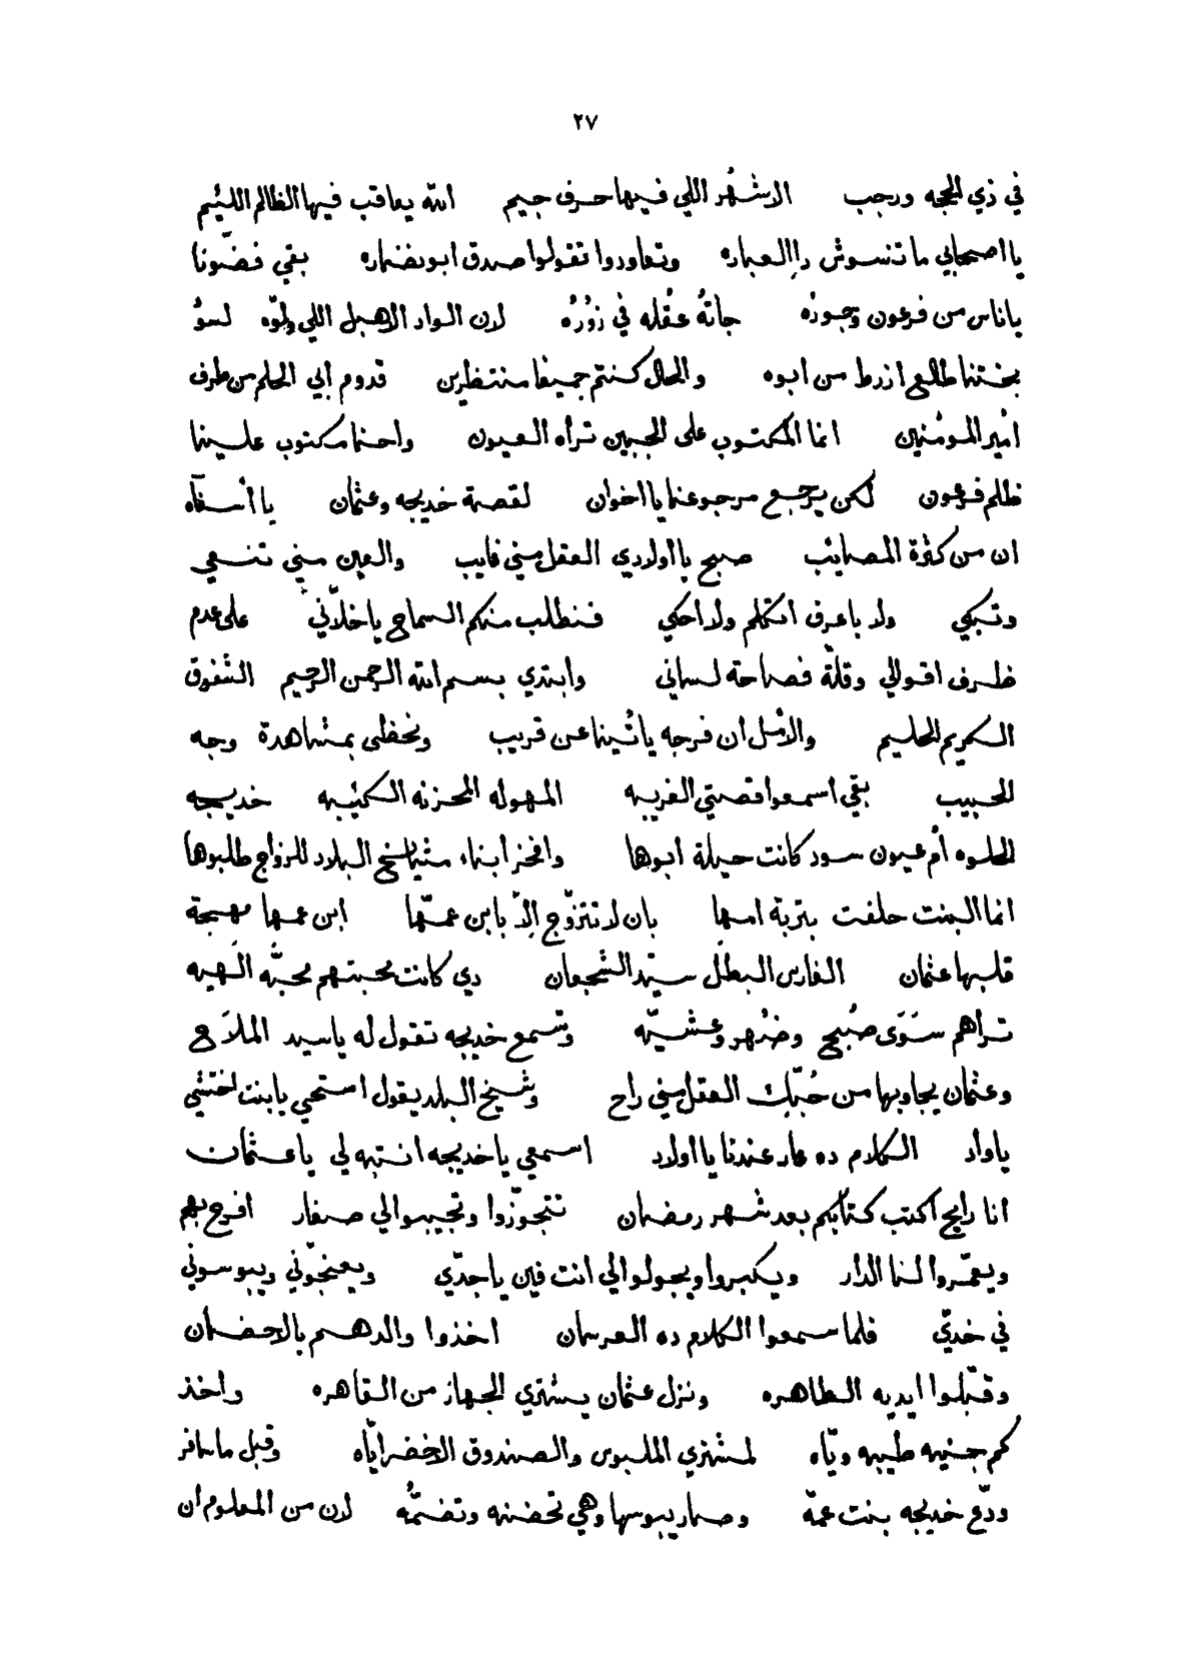 ٢٧
في ذي الحجه ورجب    الاشهُر اللي فيها حرف جيم    الله يعاقب فيها الظالم اللئيم
يا اصحابي ما تنسوش دا العباره    وتعاودوا تقولوا صدق ابو نضاره    بقي فضّونا
ياناس من فرعون وجوزه    جاتهُ عقُله في زوُرُه    لان الواد الاهبل اللي ولّوه    لسوُ
بختنا طالع ازرط من ابوه    والحال كنتم جميعا منتظرين    قدوم ابي الحلم من طرف
أمير المومُنين    انما المكتوب على الجبين تراه العيون    واحنا مكتوب علينا
ظلم فرعون    لكن يرجع مرجوعنا يا اخوان    لقصة خديجه وعثمان    يا أسفآه
ان من كثرة المصائب    صبح يا اولادي العقل مني غايب    والعين مني تنعي
وتبكي    ولا باعرف اتكلم ولا احكي    فنطلب منكم السماح ياخلّاني    على عدم
ظرف اقوالي وقلّة فصاحة لساني    وأبتدي بسم الله الرحمن الرحيم    الشفوق
الكريم الحليم    والأمل ان فرجه يأتينا عن قريب    ونحظى بمشاهدة وجه
الحبيب    بقي اسمعوا قصتي الغريبه    المهوله المحزنه الكئيبه    خديجه
الحلوه أم عيون سود كانت حيلة ابوها    وافخر ابناء مشايخ البلاد للزواج طلبوها
انما البنت حلفت بتربة امها    بان لا تتزوّج إلّا بابن عمّها    ابن عمها مهجة
قلبها عثمان    الفارس البطل سيّد الشجعان    دي كانت محبتهم محبّه الَهيه
تراهم سَوَى صُبح وضهُر وعشيّه    وتسمع خديجه تقول له ياسيد الملاَح
وعثمان يجاوبها من حُبّك العقل مني راح    وشيخ البلد يقول استحي يابنت اختشي
ياواد    الكلام ده عار عندنا يا اولاد    اسمعي ياخديجه انتبه لي ياعثمان
انا رايح أكتب كتابكم بعد شهر رمضان    تتجوّزوا وتجيبوا لي صغار    افرح بهم
ويعمّروا لنا الدار    ويكبروا ويجولوا لي انت فين ياجدّي    ويعنجّوني ويبوسوني
في خدّي    فلما سمعوا الكلام ده العرسان    اخذوا والدهم بالاحضان
وقبّلوا ايديه الطاهره    ونزل عثمان يشتري الجهاز من القاهره    واخذ
كم جنيه طيبه ويّاه    لمشتري الملبوس والصندوق الاخضر ايّاه    وقبل ما سافر
ودّع خديجه بنت عمّه    وصار يبوسها وهي تحضنه وتضمُّه    لان من المعلوم ان